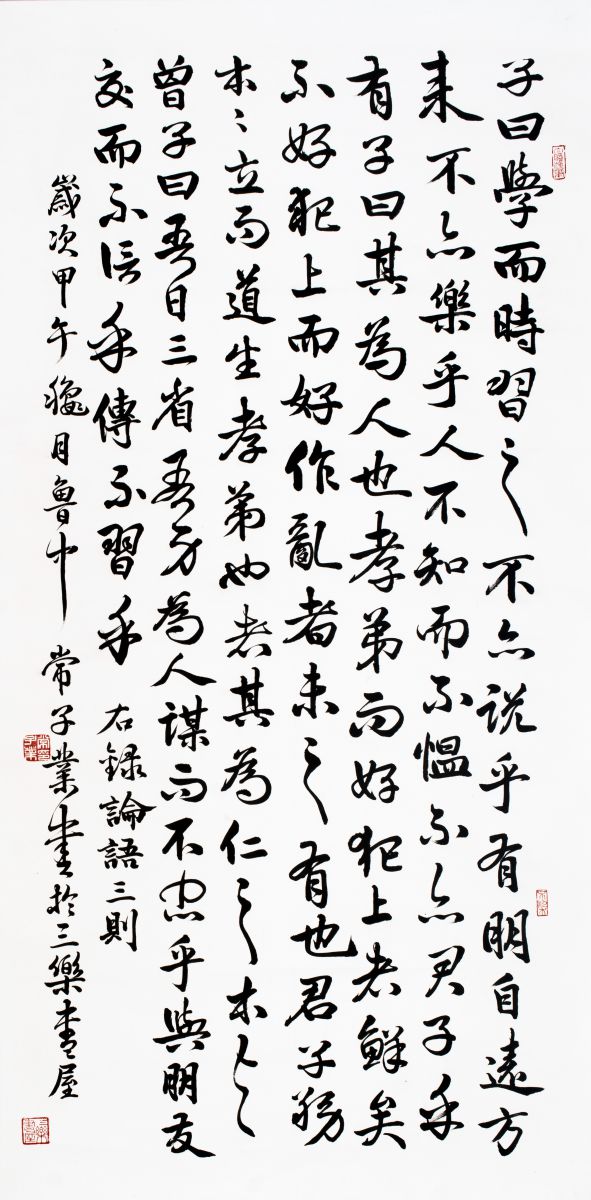 子曰學而時習之不亦說乎有朋自遠方
来不亦樂乎人不知而不愠不亦君子乎
有子曰其為人也孝弟而好犯上者鮮矣
不好犯上而好作亂者未之有也君子務
本〻立而道生孝弟也者其為仁之本与
曾子曰吾日三省吾身為人謀而不忠乎與朋友
交而不信乎傳不習乎 右録論語三則
歲次甲午穐月魯中 常子業書於三樂書屋